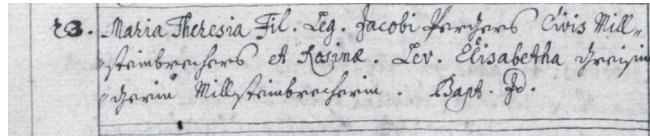 23. Maria Theresia Fil. Leg. Jacobi Perchers Civis Mill=
=steinbrechers et Rosinæ. Lev. Elisabetha
Millsteinbrecherin. Bapt. Id.